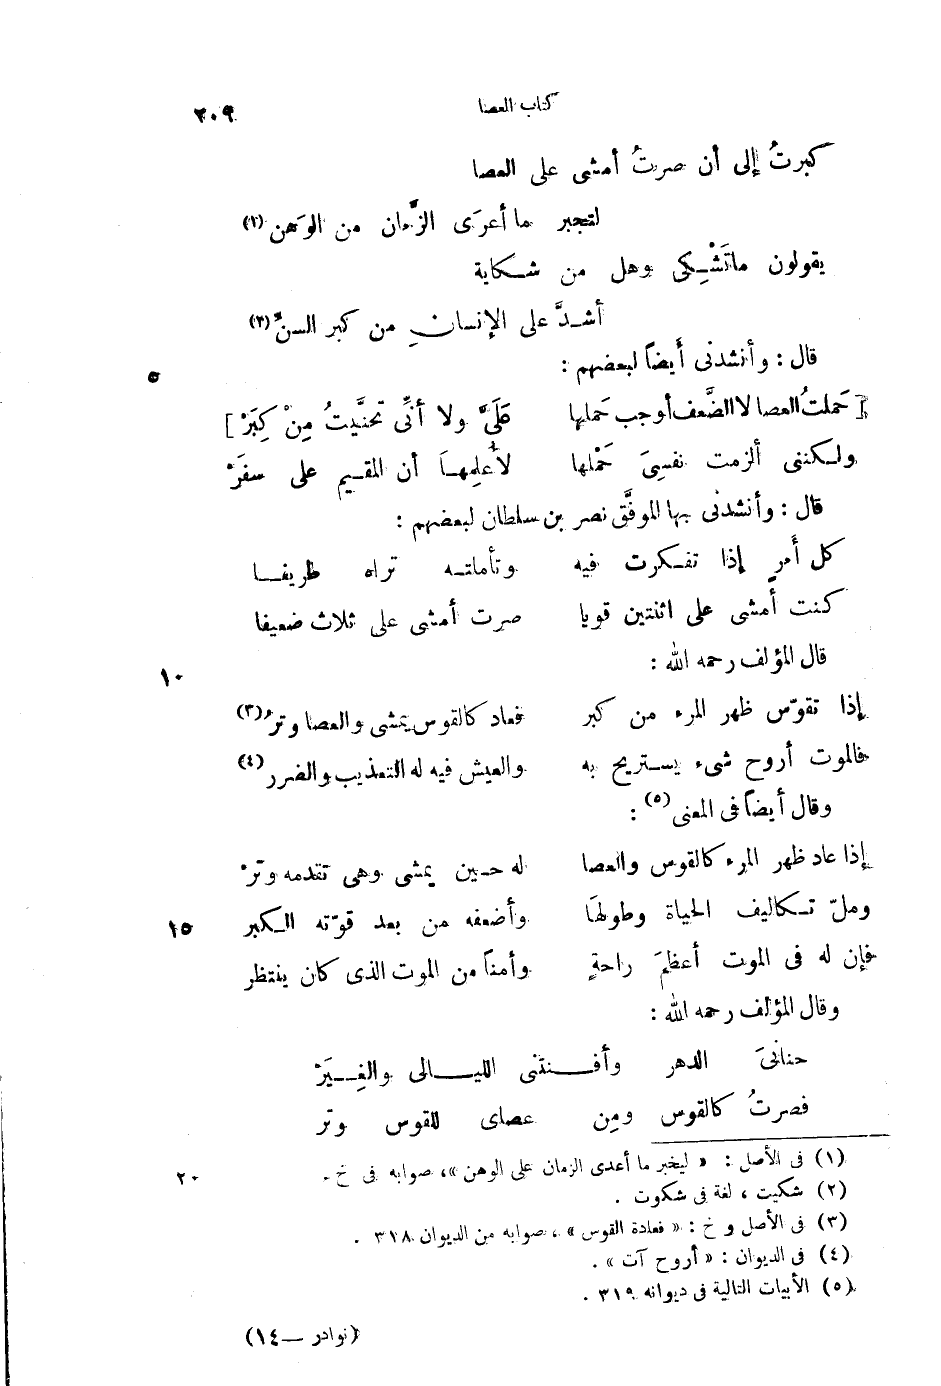 كتاب العصا ٢٠٩
كبرتُ إلى أن صرتُ أمشى على العصا
لتجبر ما أعرَى الزَّمان من الوَهن (١)
يقولون ماتَشْـتِكى وهل من شـكاية
أشـدَّ على الإنسانِ من كبر السنِّ (٢)
قال : وأنشدنى أيضاً لبعضهم : ٥
[حَملتُ العصا لا الضَّعف أوجب حَملها علَىَّ ولا أنِّى تحنَّيتُ مِنْ كِبَرْ]
ولـكننى ألزمت نفسِىَ حَمْلها لأُعلِمهـا أن المقـيم على سفَرْ
قال : وأنشدنى بها الموفَّق نصر بن سلطان لبعضهم :
كل أمرٍ إذا تفـكرت فيه وتأملتـه تراه ظريفـا
كنت أمشى على اثنتين قويا صرت أمشى على ثلاث ضعيفا
قال المؤلف رحمه الله : ١٠
إذا تقوّس ظهر المرء من كبر فعاد كالقوس يمشى والعصا وترُ (٣)
فالموت أروح شىء يسـتريح به والعيش فيه له التعذيب والضرر (٤)
وقال أيضاً فى المعنى (٥) :
إذا عاد ظهر المرء كالقوس والعصا له حـين يمشى وهى تقدمه وترْ
وملّ تـكاليف الحياة وطولها وأضعفه من بعد قوّته الـكبر ١٥
فإن له فى الموت أعظمَ راحةٍ وأمناً من الموت الذى كان ينتظر
وقال المؤلف رحمه الله :
حنانىَ الدهر وأفـــنتنى الليـــالى والغِـــيَرْ
فصرتُ كالقوس ومِن عصاى للقوس وتر
(١) فى الأصل : « ليخبر ما أعدى الزمان على الوهن »، صوابه فى خ . ٢٠
(٢) شكيت ، لغة فى شكوت .
(٣) فى الأصل و خ : « فعادة القوس » ، صوابه من الديوان ٣١٨ .
(٤) فى الديوان : « أروح آت » .
(٥) الأبيات التالية فى ديوانه ٣١٩ .
(نوادر – ١٤)